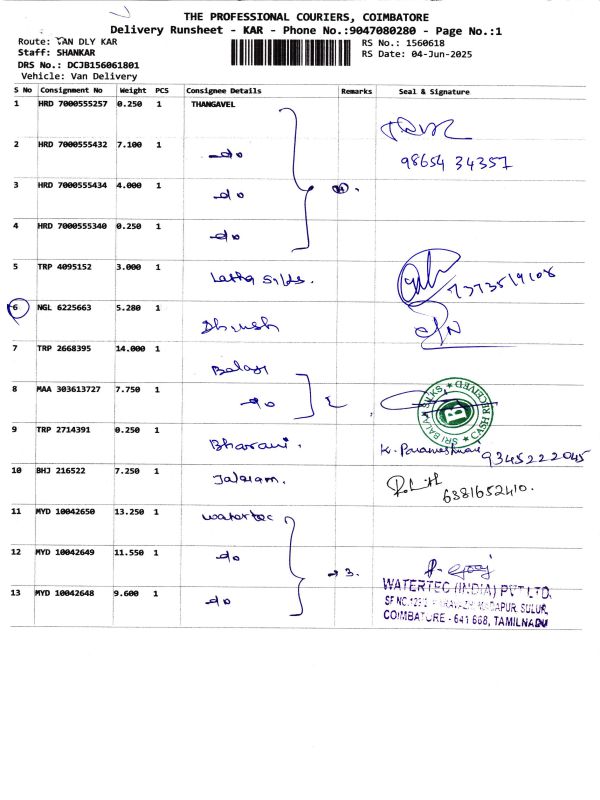 THE PROFESSIONAL COURIERS, COIMBATORE
Delivery Runsheet - KAR - Phone No.:9047080280 - Page No.:1
Route: VAN DLY KAR
RS No.: 1560618
Staff: SHANKAR
RS Date: 04-Jun-2025
DRS No.: DCJB156061801
Vehicle: Van Delivery
S No Consignment No Weight PCS Consignee Details Remarks Seal & Signature
1 HRD 7000555257 0.250 1 THANGAVEL
2 HRD 7000555432 7.100 1 do
98654 34357
3 HRD 7000555434 4.000 1 do
4 HRD 7000555340 0.250 1 do
5 TRP 4095152 3.000 1 Latha Silks.
7373519108
6 NGL 6225663 5.280 1 Dhinesh
7 TRP 2668395 14.000 1 Balaji
8 MAA 303613727 7.750 1 do
SRI BALAJI SILKS CASH RECEIVED
9 TRP 2714391 0.250 1 Bharani. K. Parameshwari 9345222045
10 BHJ 216522 7.250 1 Jalaram.
6381652410.
11 MYD 10042650 13.250 1 watertec
12 MYD 10042649 11.550 1 do
→ 3.
13 MYD 10042648 9.600 1 do
WATERTEC (INDIA) PVT LTD.
SULUR,
COIMBATORE - 641 668, TAMILNADU